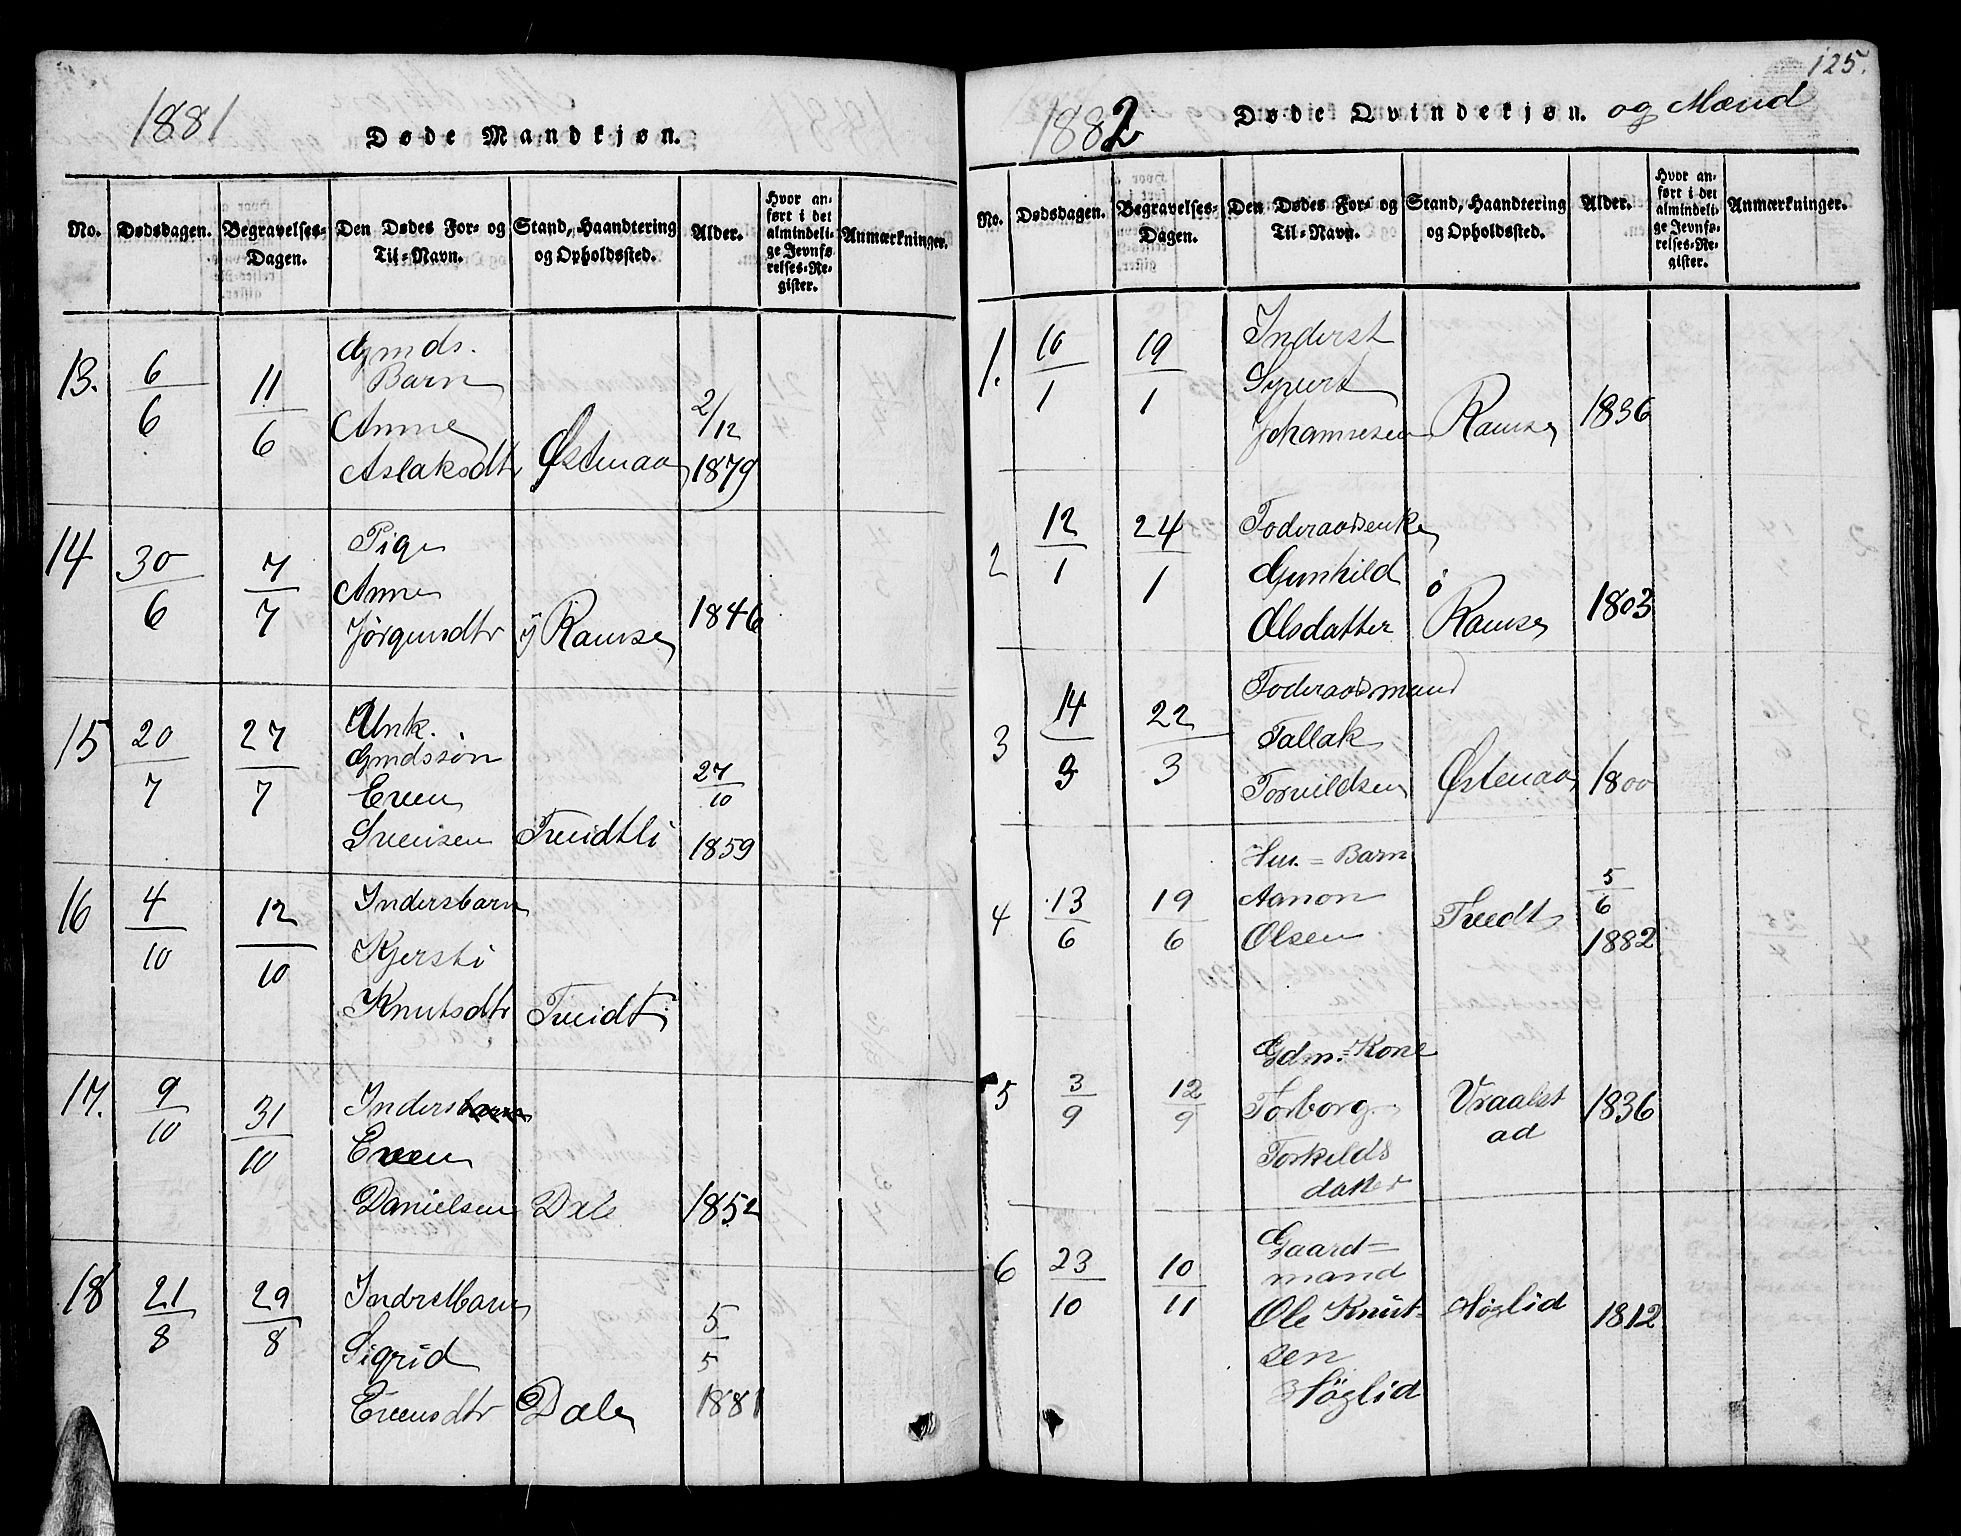 1881
Døde Mandkjøn.
No. Dødsdagen. Begravelses-Dagen. Den Dødes For- og Til-Navn. Stand, Haandtering og Opholdssted. Alder. Hvor anført i det almindelige Jevnførelses-Register. Anmærkninger.
13. 6/6 11/6 Gmds.
Barn
Anne
Aslaksdtr Østenaa 2/12 1879
14 30/6 7/7 Pige
Anne
Jørgensdtr Ramse 1846
15 20/7 27/7 Unk.
Gmdssøn
Even
Svensen Tveidtli 27/10 1859
16 4/10 12/10 Indersbarn
Kjersti
Knutsdtr Tveidt
17. 9/10 31/10 Inderst
Even
Danielsen Dale 1852
18 21/8 29/8 Inderstbarn
Sigrid
Evensdtr Dale 5/5 1881
125.
1882 Døde Qvindekjøn. og Mænd
No. Dødsdagen. Begravelses-Dagen. Den Dødes For- og Til-Navn. Stand, Haandtering og Opholdssted. Alder. Hvor anført i det almindelige Jevnførelses-Register. Anmærkninger.
1. 10/1 19/1 Inderst
Syvert
Johannesen Ramse 1836
2 12/1 24/1 Foderaadsenke
Gunhild
Olsdatter Ramse 1803
3 14/3 22/3 Foderaadsmand
Tallak
Torvildsen Østenaa 1800
4 13/6 19/6 Hus.= Barn
Aanon
Olsen Tvedt 5/6 1882
5 3/9 12/9 Gdm.=Kone
Torborg
Torkelds
datter Vraalst
ad 1836
6 23/10 10/11 Gaard=
mand
Ole Knut-
sen
Høglid Høglid 1812